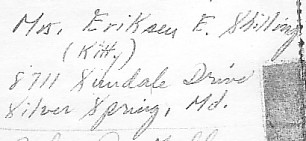 Mrs. Eriksen E. Shilling
(Kitty)
8711 Sundale Drive
Silver Spring, Md.